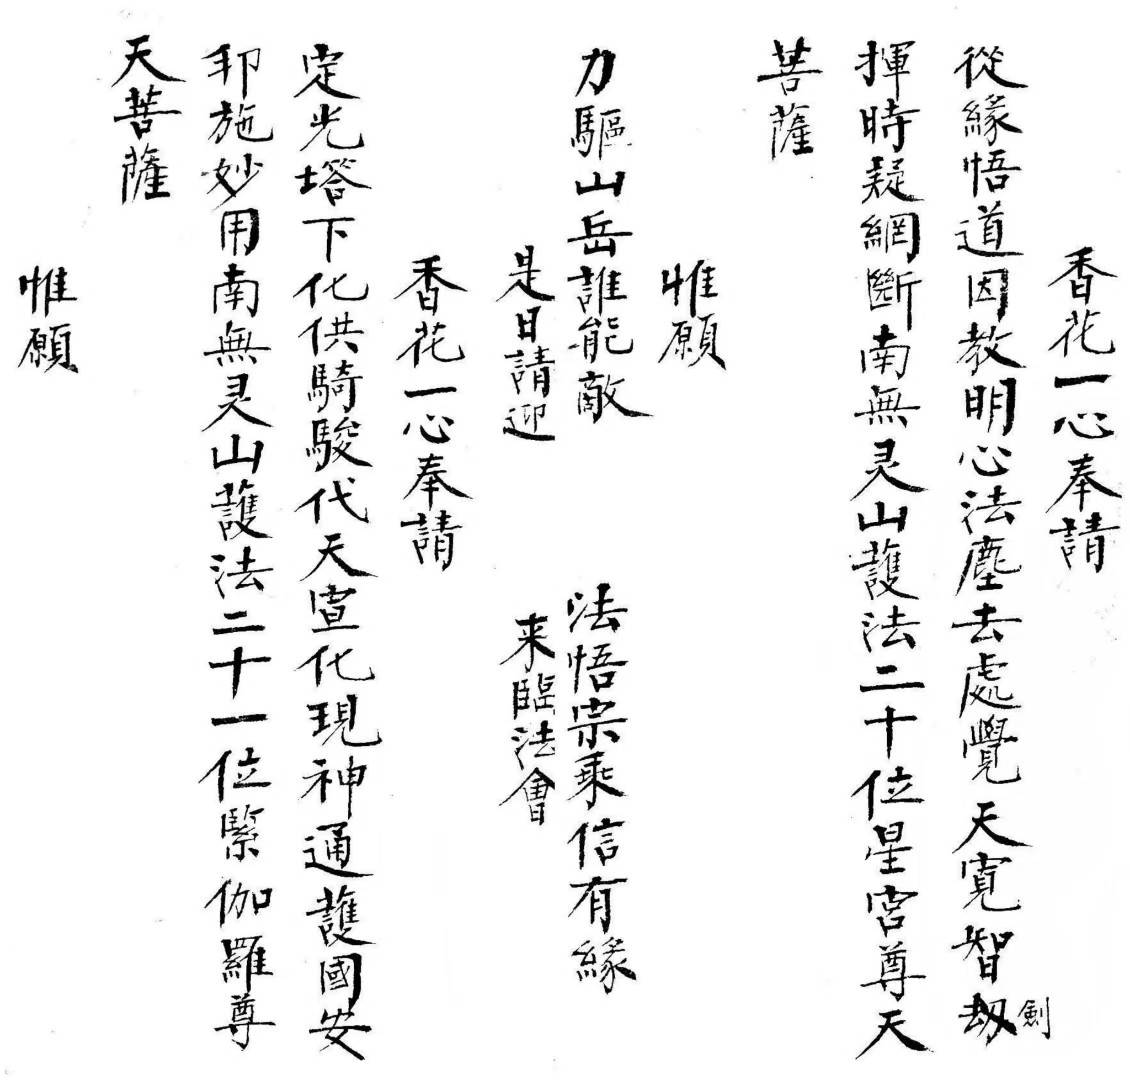 香花一心奉請
從緣悟道因教明心法塵去處覺天寬智劒
劍
揮時疑網斷南無灵山護法二十位星宮尊天
菩薩
惟願
力驅山岳誰能敵 法悟宗乘信有緣
是日請迎 来臨法會
香花一心奉請
定光塔下化供騎駿代天宣化現神通護國安
邦施妙用南無灵山護法二十一位緊伽羅尊
天菩薩
惟願